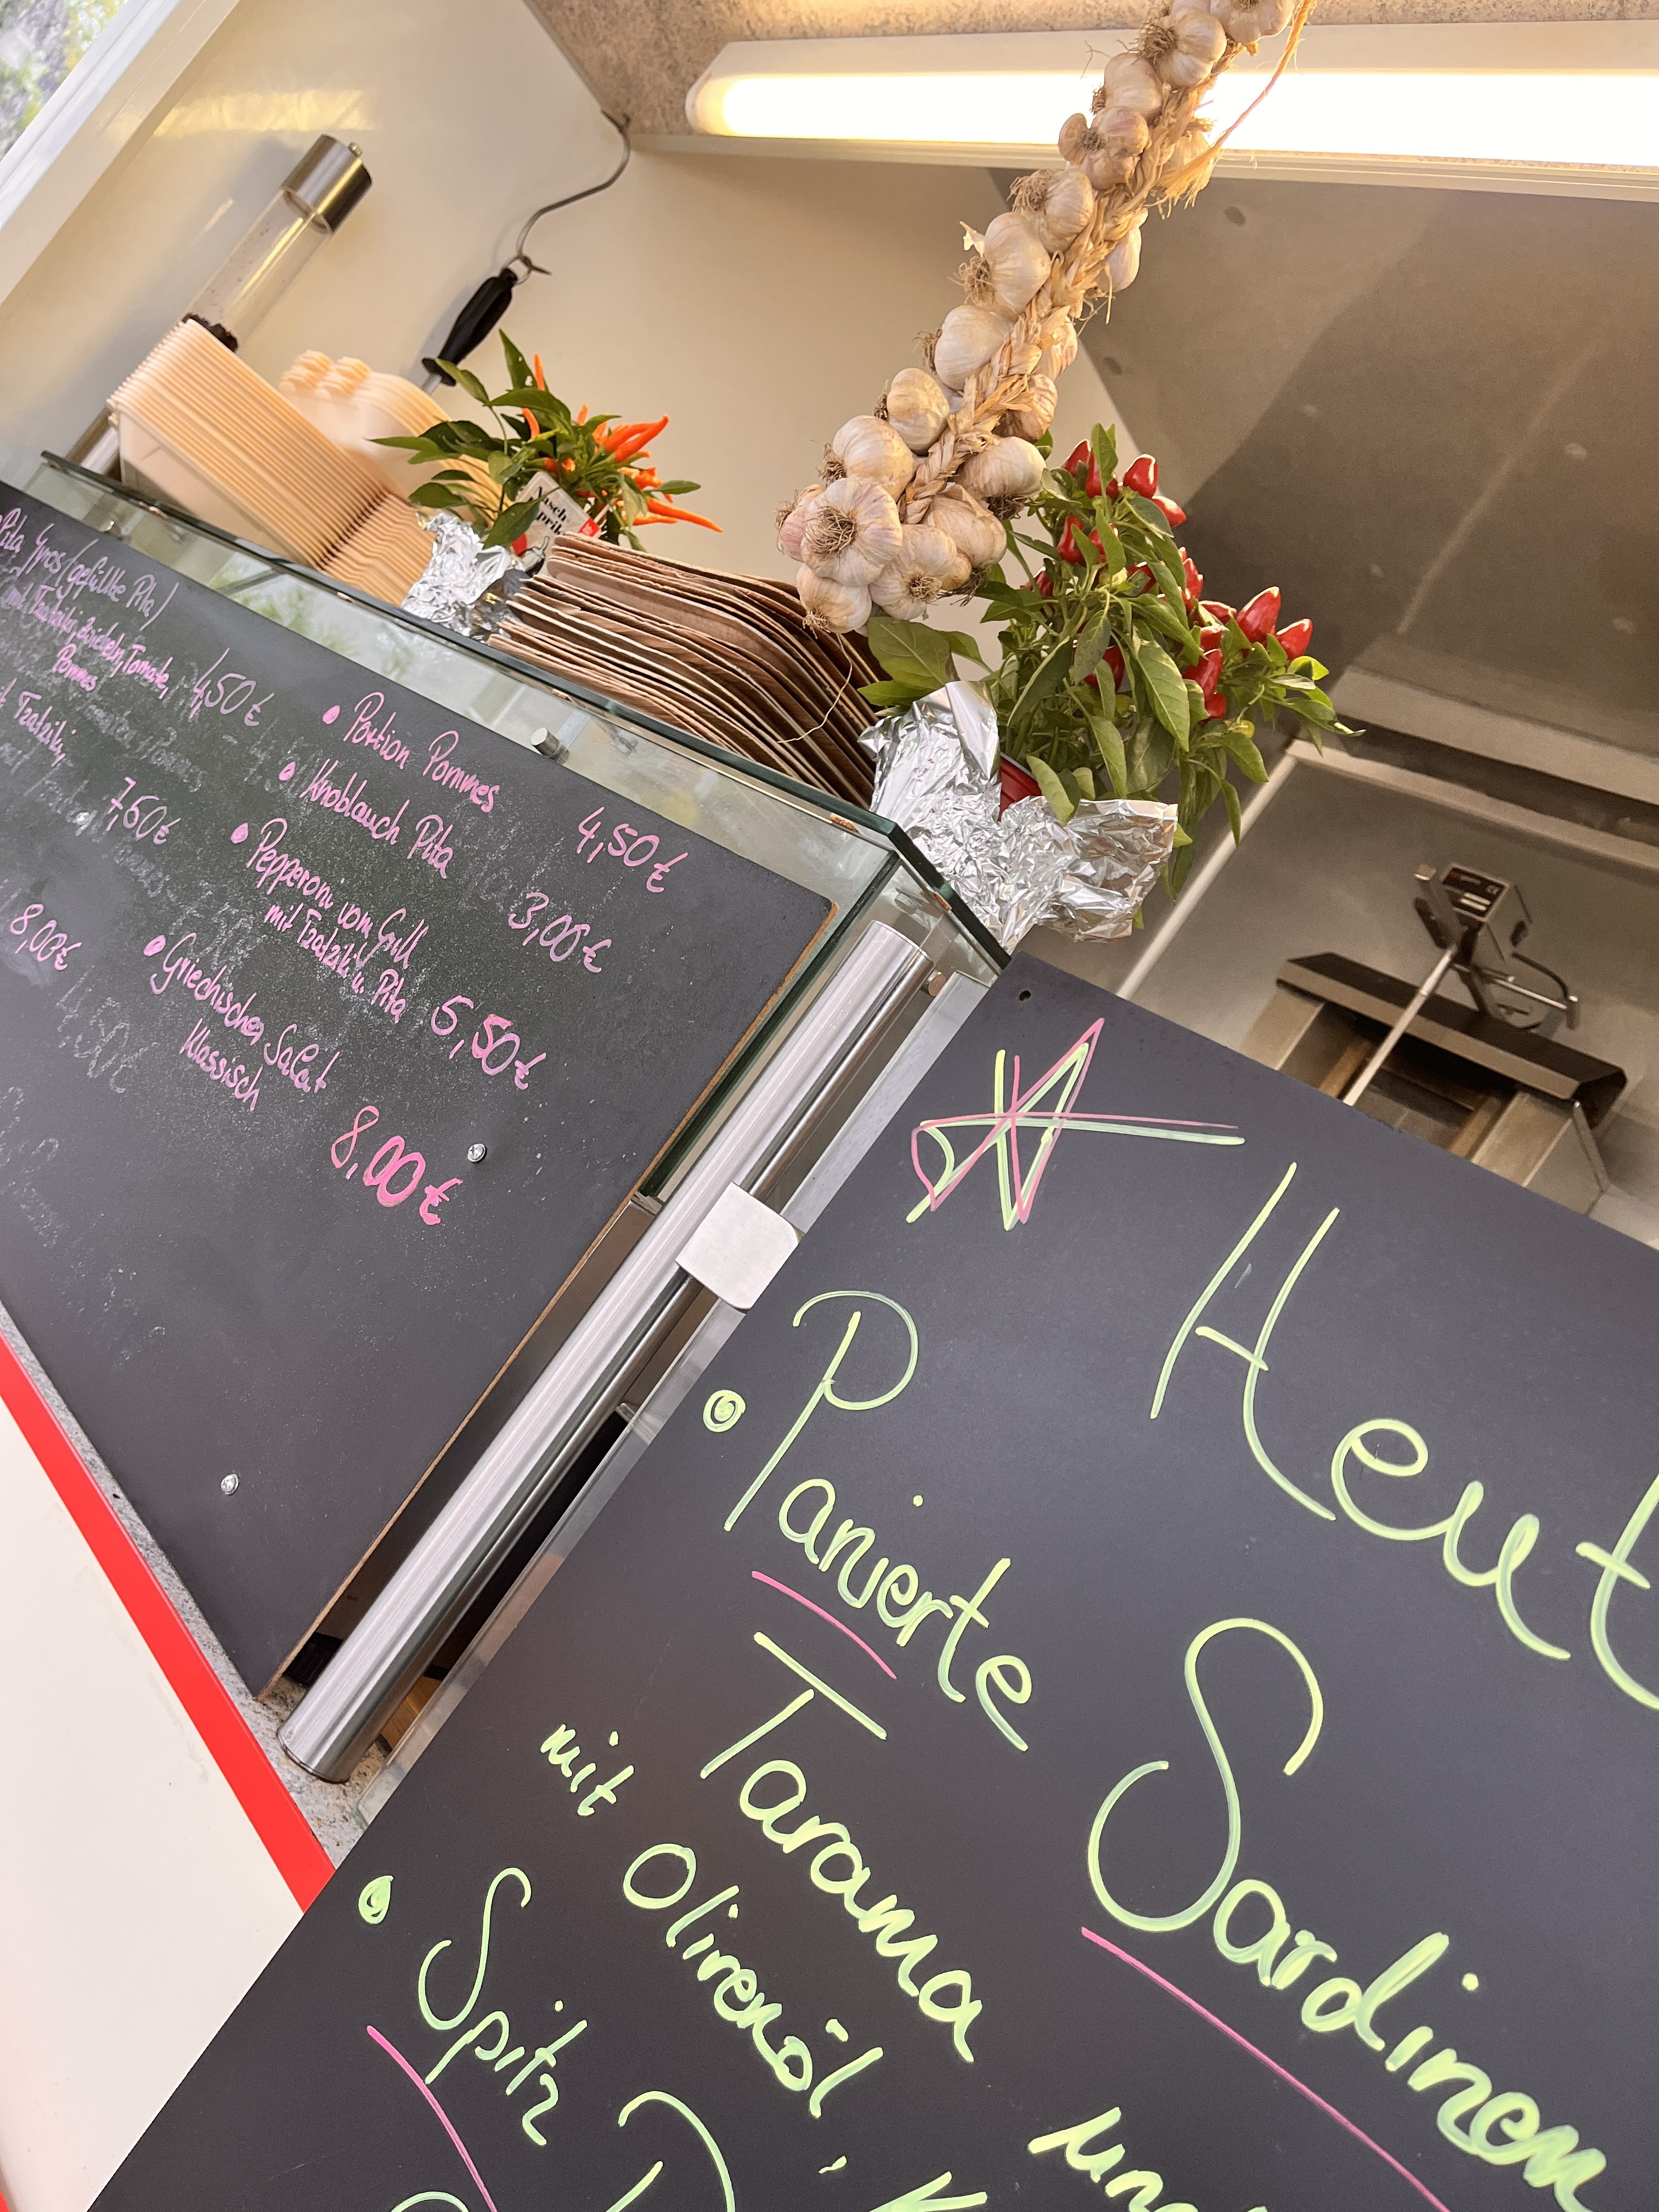 Pita Gyros (gefüllte Pita)
mit Tzatziki, Zwiebeln, Tomate,
Pommes
4,50€
Tzatziki,
7,50€
8,00€
• Portion Pommes 4,50€
• Knoblauch Pita 3,00€
• Pepperoni vom Grill
mit Tzatziki u. Pita 5,50€
• Griechischer Salat
Klassisch 8,00€
Heut
• Panierte Sardinen
Tarama
mit Olivenöl,
• Spitz